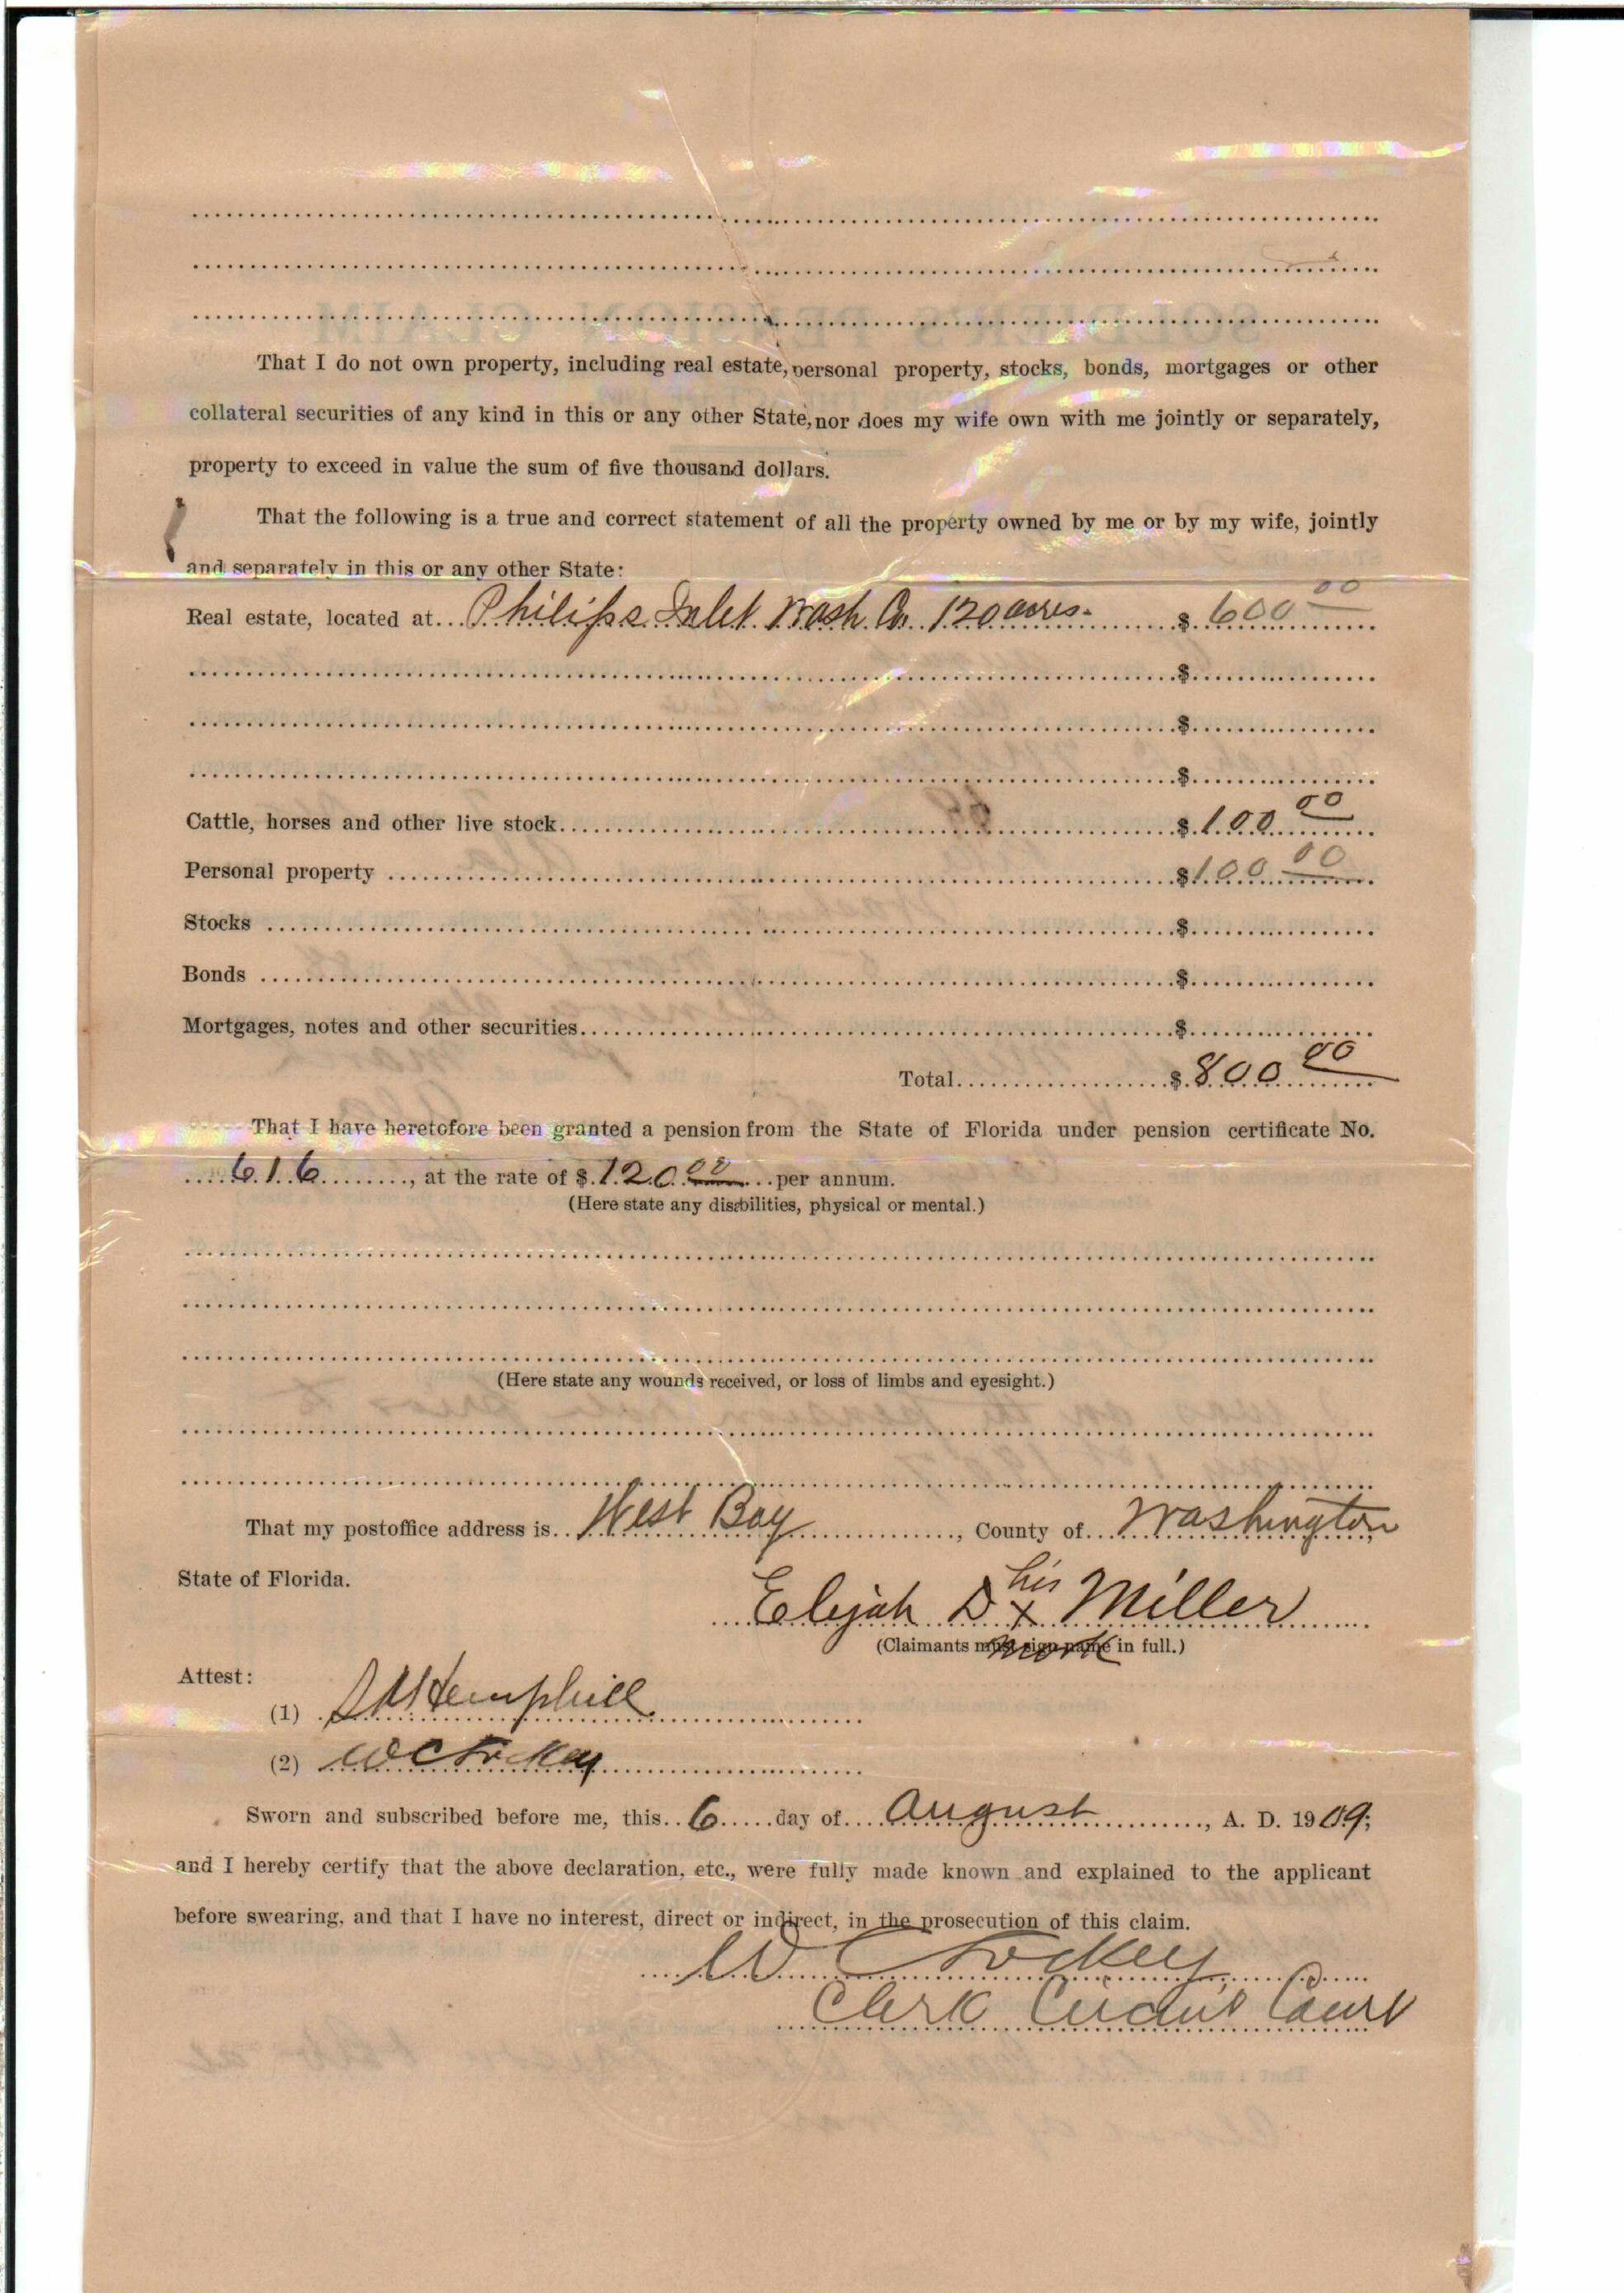 That I do not own property, including real estate, personal property, stocks, bonds, mortgages or other
collateral securities of any kind in this or any other State, nor does my wife own with me jointly or separately,
property to exceed in value the sum of five thousand dollars.
That the following is a true and correct statement of all the property owned by me or by my wife, jointly
and separately in this or any other State:
Real estate, located at Philips Inlet Wash Co. 120 acres. $ 600 00
$
$
$
Cattle, horses and other live stock $ 100 00
Personal property $ 100 00
Stocks $
Bonds $
Mortgages, notes and other securities $
Total $ 800 00
That I have heretofore been granted a pension from the State of Florida under pension certificate No.
616, at the rate of $ 120 00 per annum.
(Here state any disabilities, physical or mental.)
(Here state any wounds received, or loss of limbs and eyesight.)
That my postoffice address is West Bay, County of Washington,
State of Florida.
his
Elijah D x Miller
mark
(Claimants must sign name in full.)
Attest:
(1) Hemphill
(2) W C Lockey
Sworn and subscribed before me, this 6 day of August, A. D. 1909;
and I hereby certify that the above declaration, etc., were fully made known and explained to the applicant
before swearing, and that I have no interest, direct or indirect, in the prosecution of this claim.
W C Lockey
Clerk Circuit Court